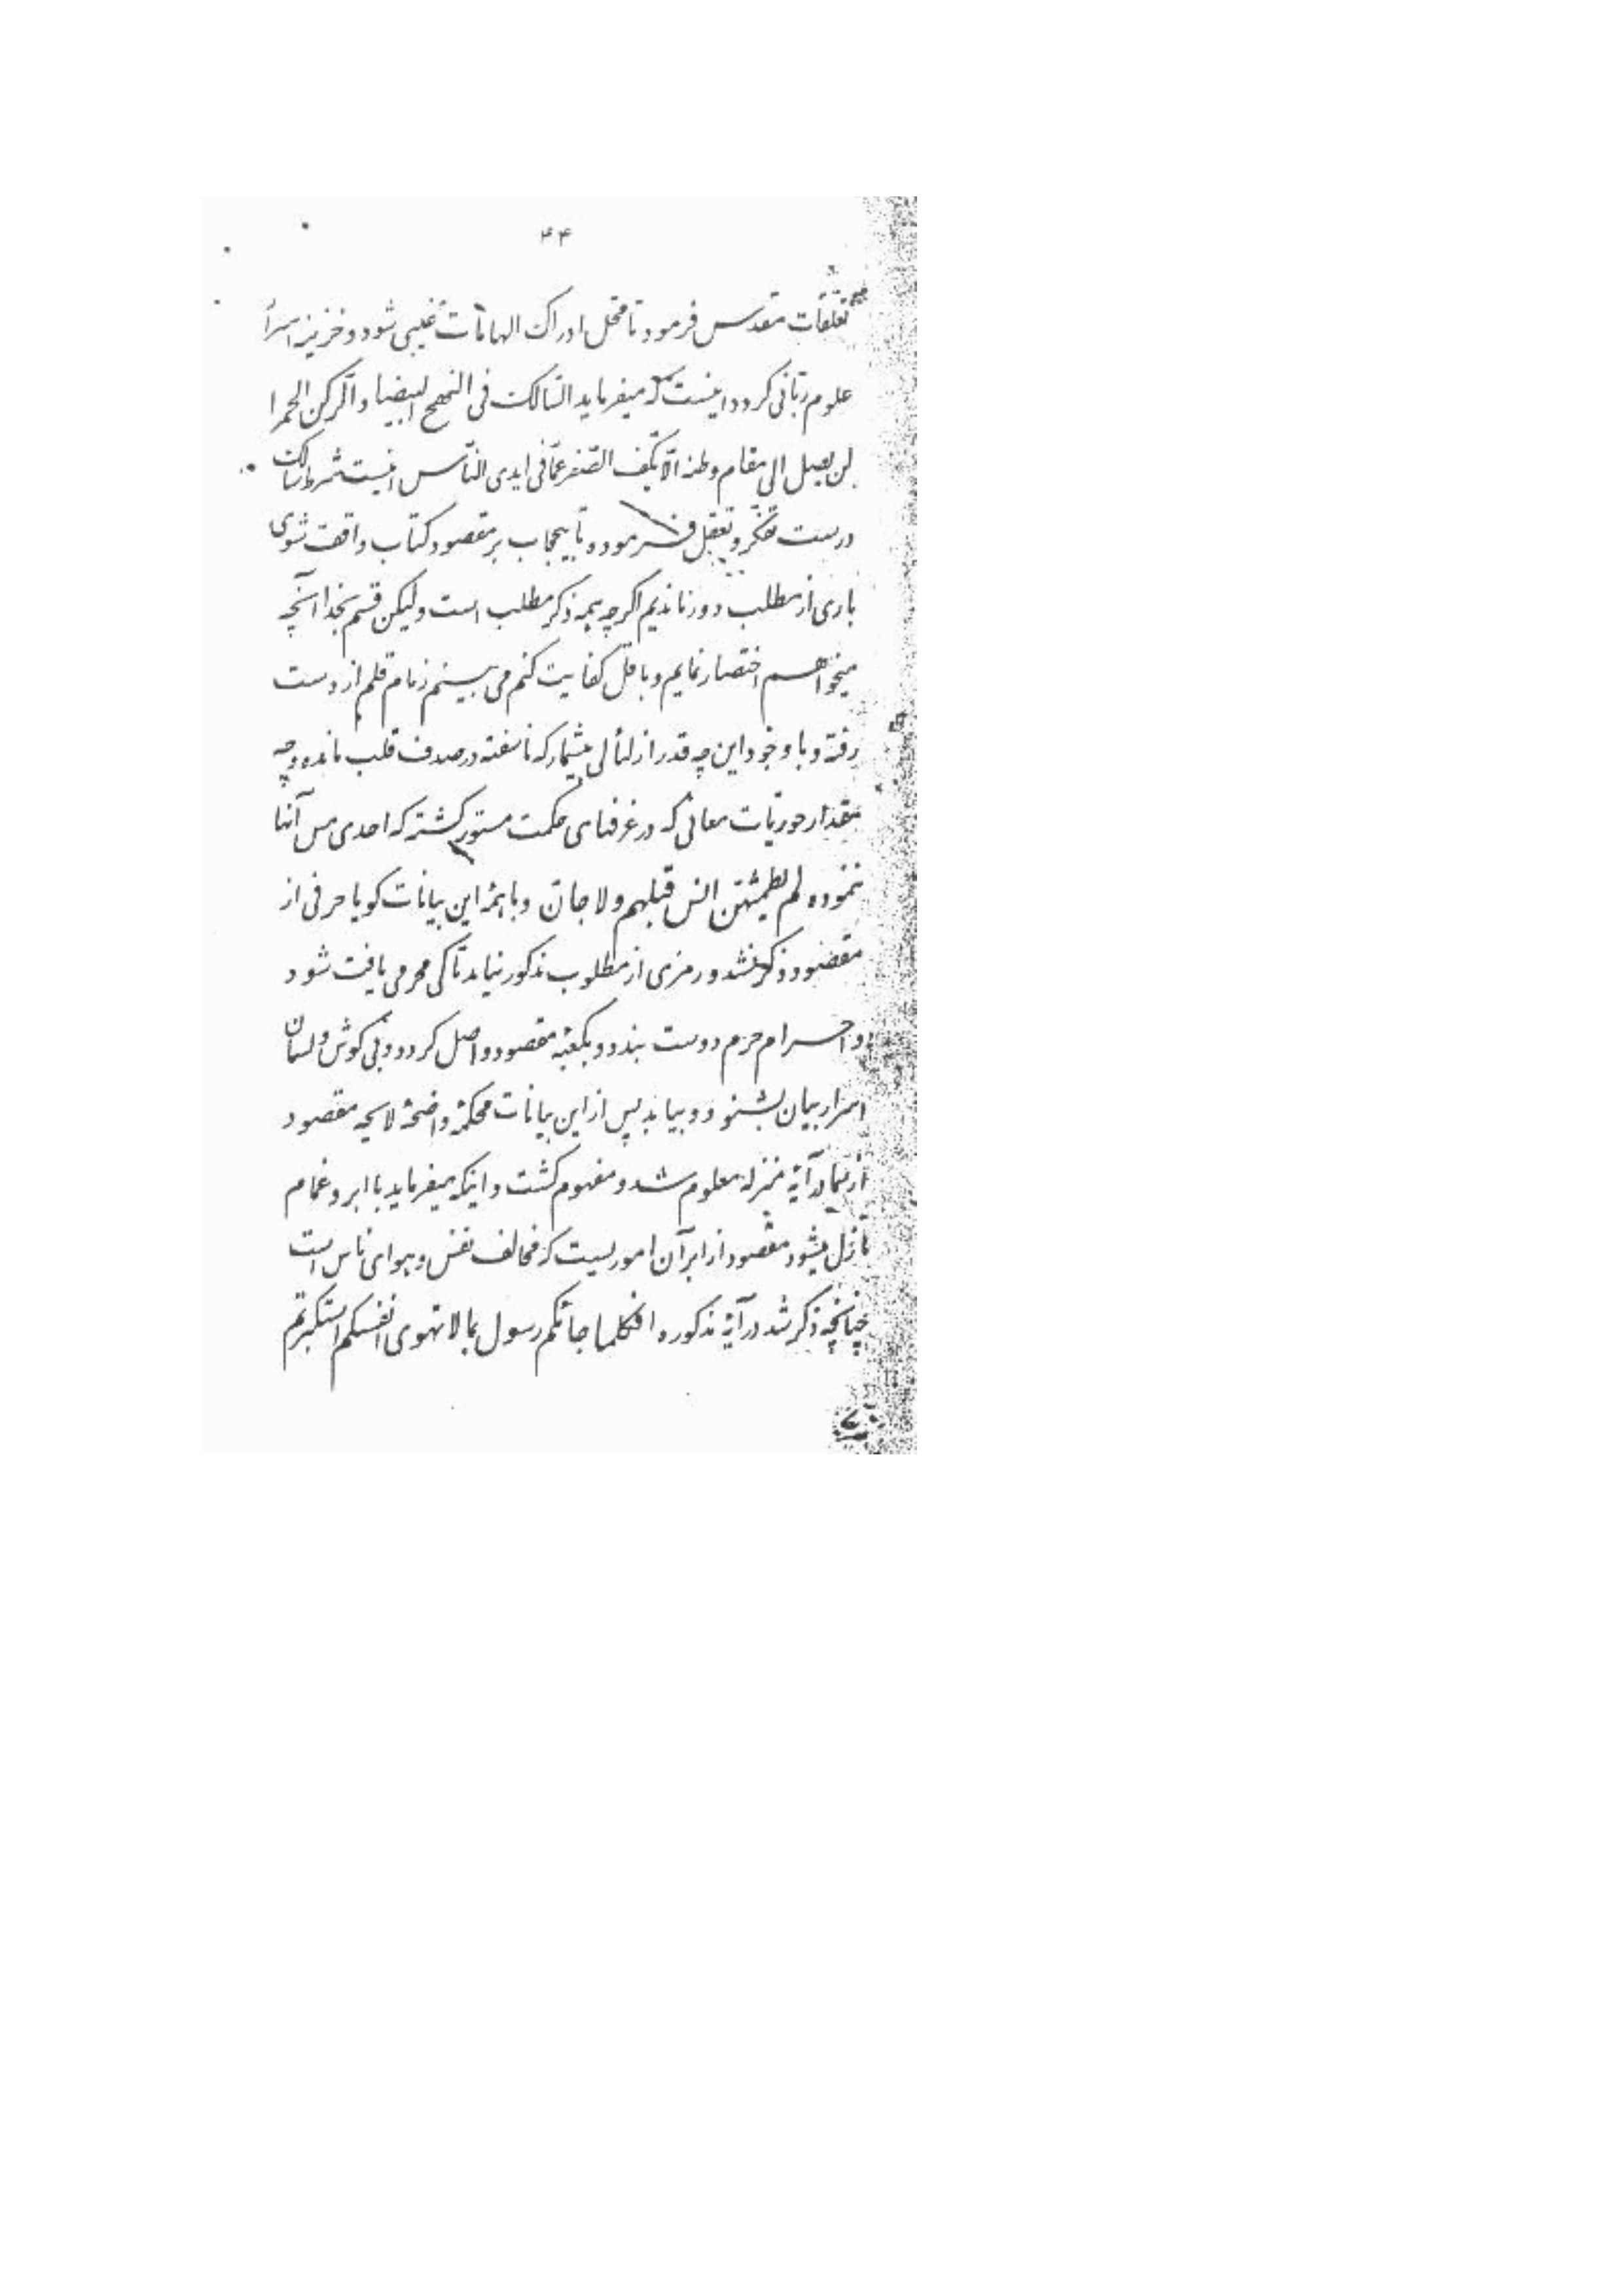 ۴۴
تعلقات مقدس فرمود تا محل ادراک الهامات غیبی شود و خزینه اسرار
علوم ربّانی گردد اینست که میفرماید السّالک فی النهج البیضاء و الرکن الحمرا
لن یصل الی مقام وطنه الّا بکف الصّفر عمّا فی ایدی النّاس اینست شرط سالک
درست تفکّر و تعقّل فرموده تا بیحجاب بر مقصود کتاب واقف شوی
باری از مطلب دور ماندیم اگرچه همه ذکر مطلب است ولیکن قسم بخدا آنچه
میخواهم اختصار نمایم و باقلّ کفایت کنم می بینم زمام قلم از دست
رفته و با وجود این چه قدر از لئالی بیشمار که ناسفته در صدف قلب مانده و چه
مقدار حوریّات معانی که در غرفهای حکمت مستور گشته که احدی مس آنها
ننموده لم یطمثهنّ انس قبلهم ولا جانّ و با همهٔ این بیانات گویا حرفی از
مقصود ذکر نشد و رمزی از مطلوب مذکور نیامد تا کی محرمی یافت شود
و احرام حرم دوست بندد و بکعبه مقصود واصل گردد و بی گوش و لسان
اسرار بیان بشنود و بیابد پس از این بیانات محکمهٔ واضحهٔ لایحه مقصود
از سما در آیهٔ منزله معلوم شد و مفهوم گشت و اینکه میفرماید با ابر و غمام
نازل میشود مقصود از ابر آن اموریست که مخالف نفس و هوای ناس است
چنانچه ذکر شد در آیهٔ مذکوره افکلما جائکم رسول بما لا تهوی انفسکم استکبرتم